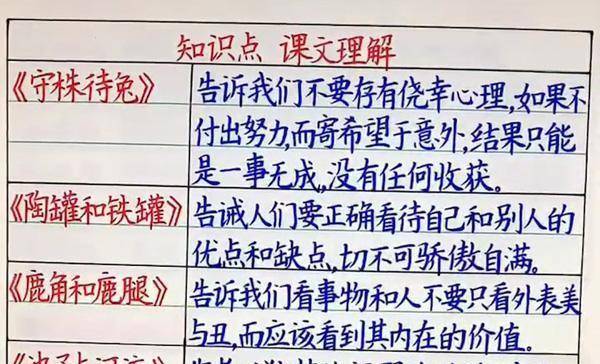 知识点 课文理解
《守株待兔》
告诉我们不要存有侥幸心理,如果不
付出努力,而寄希望于意外,结果只能
是一事无成,没有任何收获。
《陶罐和铁罐》
告诫人们要正确看待自己和别人的
优点和缺点,切不可骄傲自满。
《鹿角和鹿腿》
告诉我们看事物和人不要只看外表美
与丑,而应该看到其内在的价值。